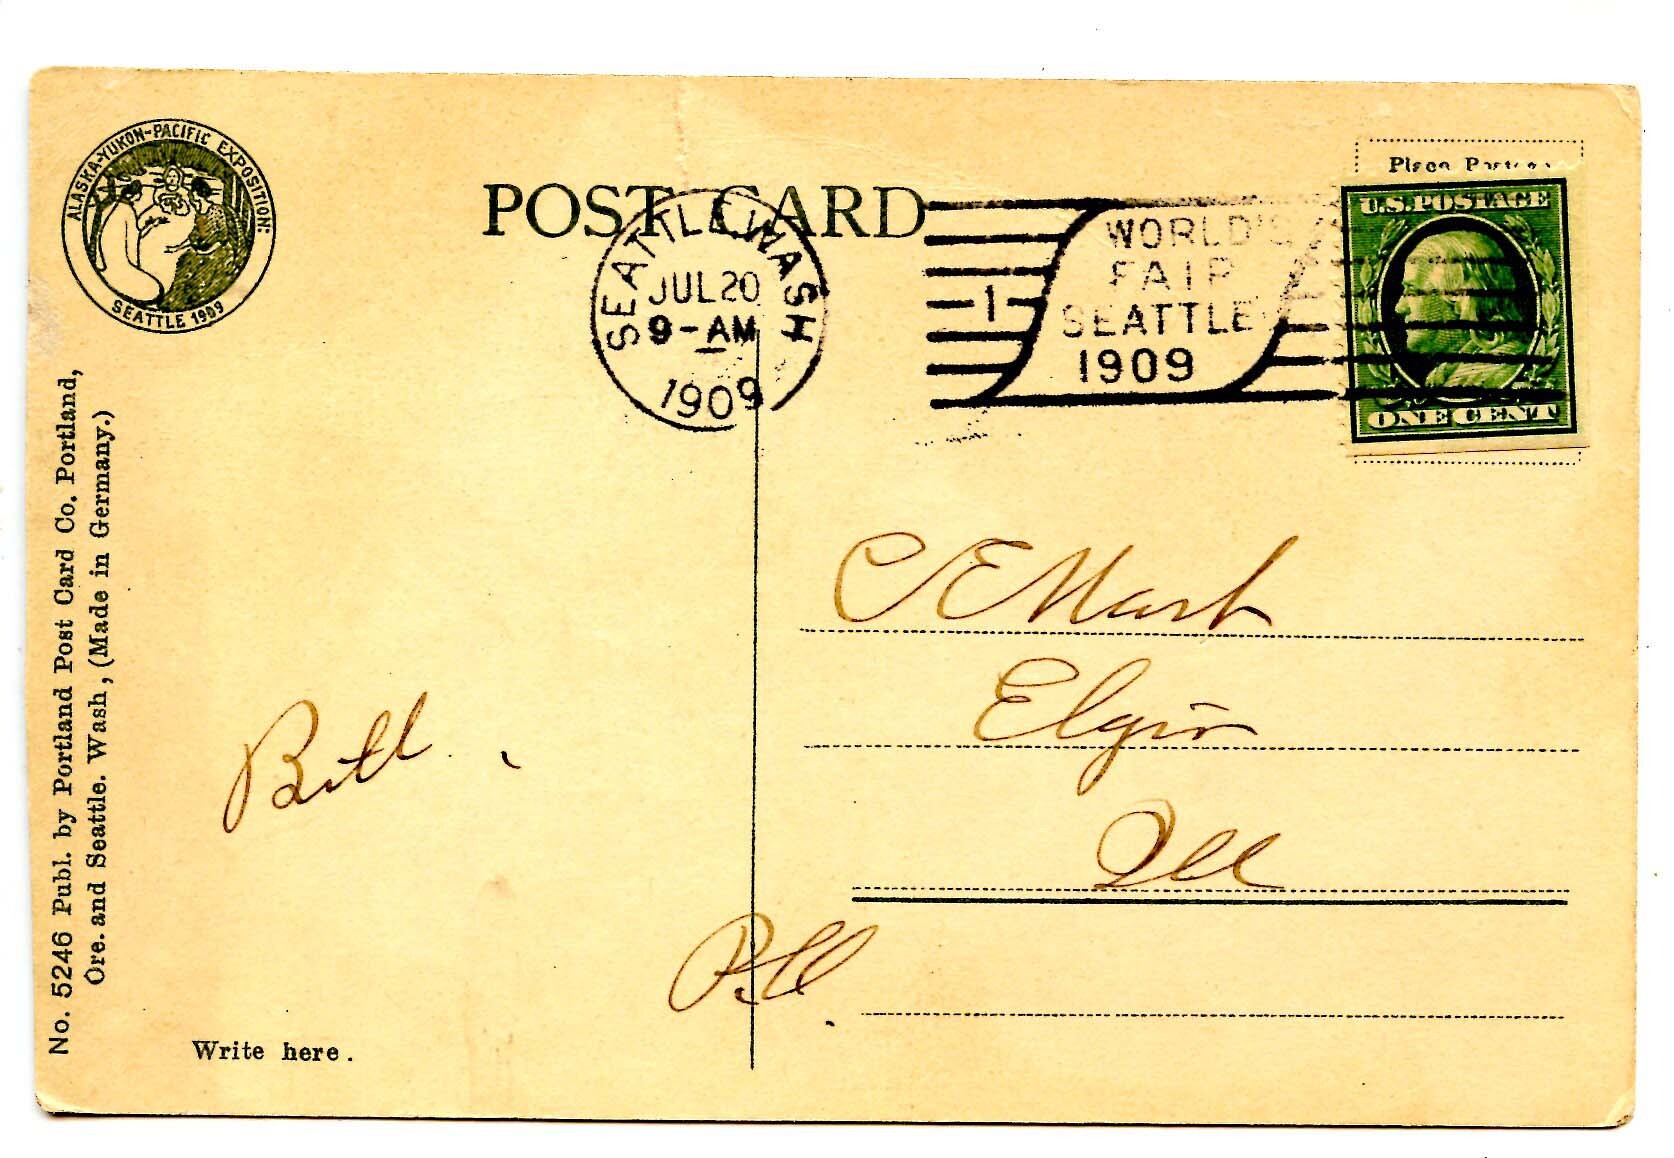 ALASKA-YUKON-PACIFIC EXPOSITION
SEATTLE 1909
POST CARD
SEATTLE, WASH
JUL 20
9-AM
1909
1
WORLD'S
FAIR
SEATTLE
1909
Place Postage
U.S. POSTAGE
ONE CENT
No. 5246 Publ. by Portland Post Card Co. Portland,
Ore. and Seattle. Wash, (Made in Germany.)
C E Marsh
Elgin
Ill
Bill.
Bill.
Write here.